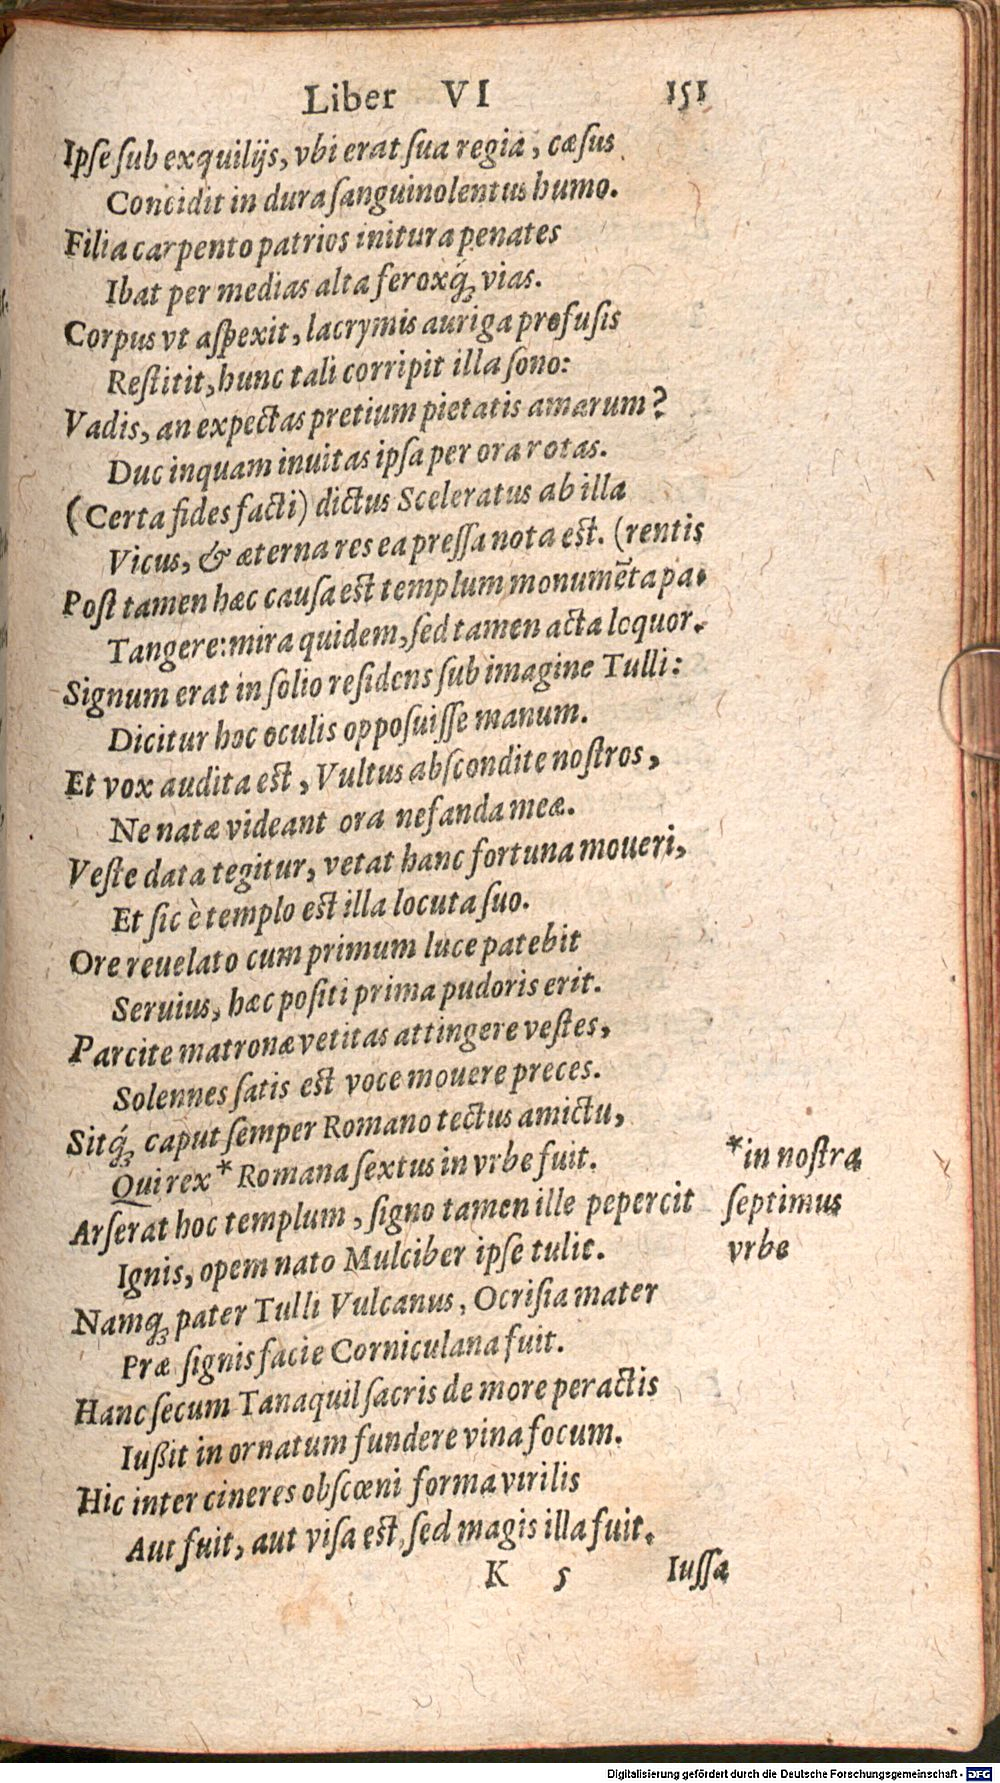 Liber VI 151
Ipſe ſub exquilijs, vbi erat ſua regia, cæſus
Concidit in dura ſanguinolentus humo.
Filia carpento patrios initura penates
Ibat per medias alta feroxq́ꝫ vias.
Corpus vt aſpexit, lacrymis auriga profuſis
Reſtitit, hunc tali corripit illa ſono:
Vadis, an expectas pretium pietatis amarum?
Duc inquam inuitas ipſa per ora rotas.
(Certa fides facti) dictus Sceleratus ab illa
Vicus, & æterna res ea preſſa nota est. (rentis
Poſt tamen hæc cauſa est templum monumēta pa-
Tangere: mira quidem, ſed tamen acta loquor.
Signum erat in ſolio reſidens ſub imagine Tulli:
Dicitur hoc oculis oppoſuiſſe manum.
Et vox audita est, Vultus abſcondite noſtros,
Ne natæ videant ora nefanda meæ.
Veſte data tegitur, vetat hanc fortuna moueri,
Et ſic è templo est illa locuta ſuo.
Ore reuelato cum primum luce patebit
Seruius, hæc poſiti prima pudoris erit.
Parcite matronæ vetitas attingere veſtes,
Solennes ſatis est voce mouere preces.
Sitq́ꝫ caput ſemper Romano tectus amictu,
Qui rex * Romana ſextus in vrbe fuit.
*in noſtra
ſeptimus
vrbe
Arſerat hoc templum, ſigno tamen ille pepercit
Ignis, opem nato Mulciber ipſe tulit.
Namqꝫ pater Tulli Vulcanus, Ocriſia mater
Præ ſignis facie Corniculana fuit.
Hanc ſecum Tanaquil ſacris de more peractis
Iußit in ornatum fundere vina focum.
Hic inter cineres obſcœni forma virilis
Aut fuit, aut viſa est, ſed magis illa fuit.
K 5 Iuſſa
Digitalisierung gefördert durch die Deutsche Forschungsgemeinschaft - DFG